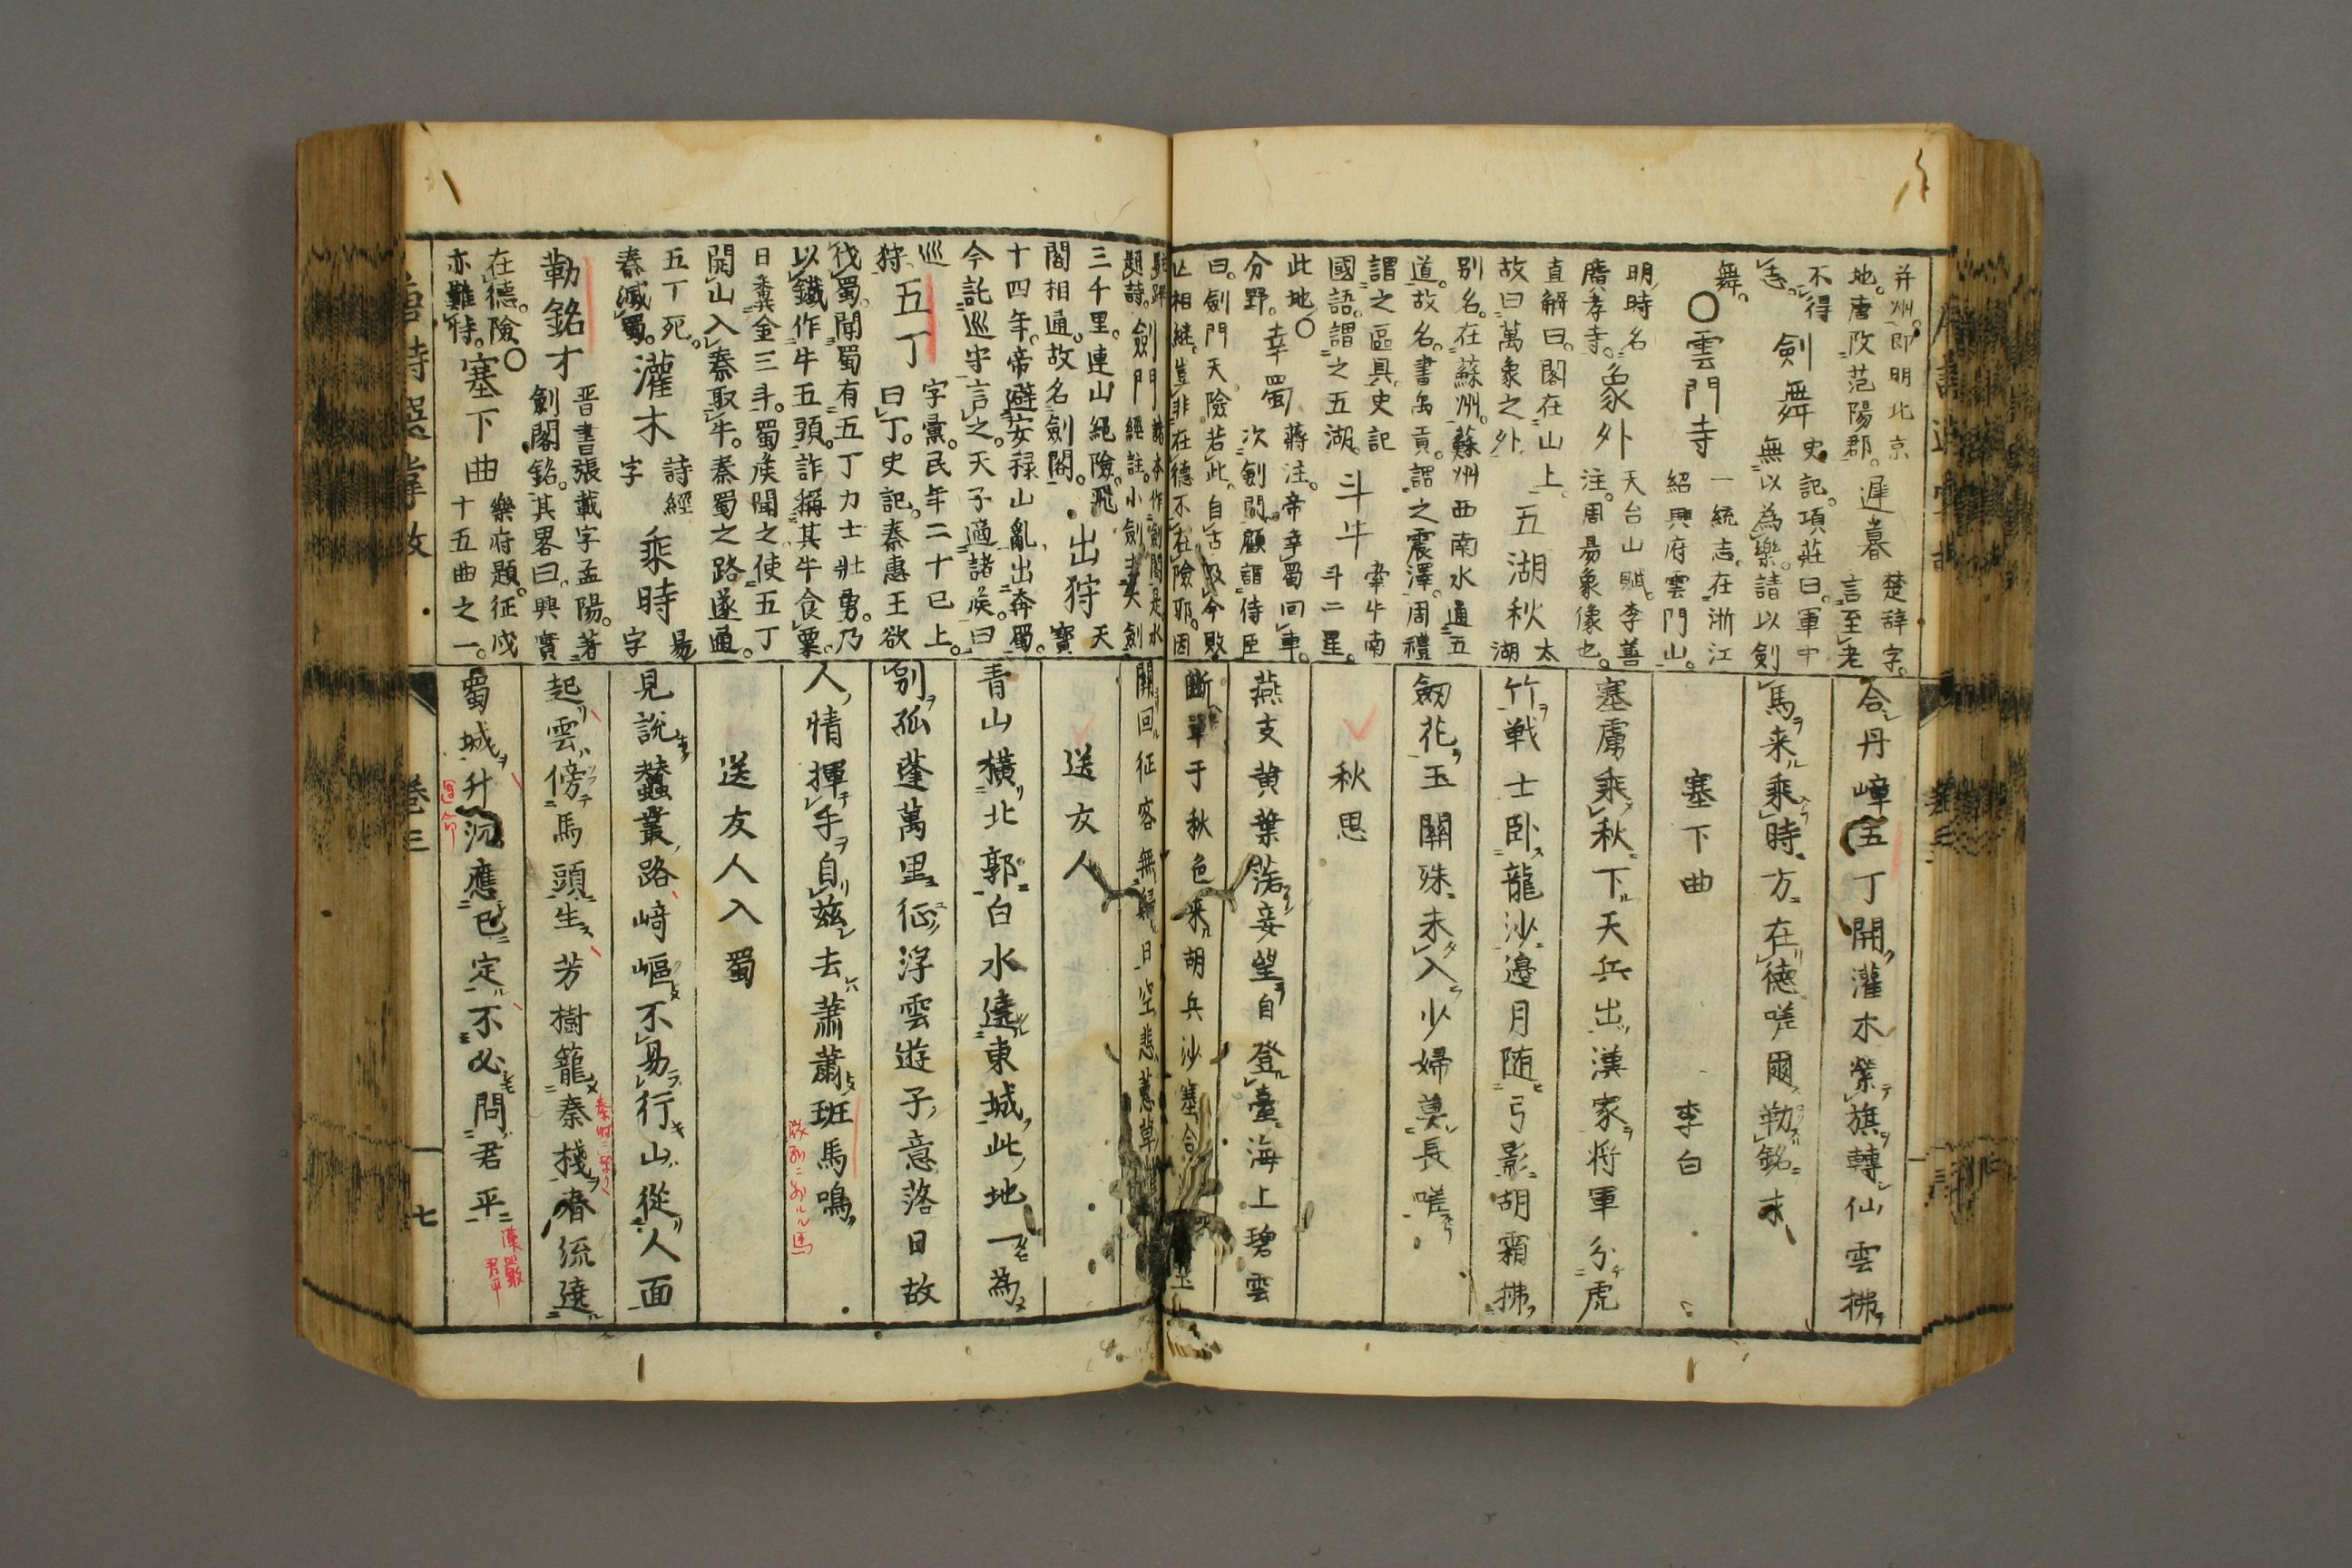 并州。即明北京
地。唐改范陽郡。遲暮 楚辞字。
不得 言至老
志。 劍舞 史記。項莊曰。軍中
無以為樂。請以劍
舞。
〇雲門寺 一統志。在浙江
紹興府雲門山。
明時名
廣孝寺。象外 天台山賦。李善
注。周易象像也。
直解曰。閣在山上。
故曰萬象之外 五湖秋 太
湖
别名。在蘇州。蘇州西南水通五
道。故名。書禹貢。謂之震澤。周禮
謂之區具。史記
國語。謂之五湖。斗牛 牽牛南
斗二星。
此地〇
分野。幸蜀 蔣注。帝幸蜀回車。
次劍閣。顧謂侍臣
曰。劍門天險若此。自古及今敗
亡相継。豈非在德不在險邪。因
題詩。劍門 經註。小劍去大劍
三千里。連山絕險。飛
閣相通。故名劍閣。出狩 天
寳
十四年。帝避安禄山亂。出奔蜀。
今託巡守言之。天子適諸侯。曰
巡
狩。五丁 字彙。民年二十已上。
曰丁。史記。秦惠王欲
伐蜀。聞蜀有五丁力士壯勇。乃
以鐵作牛五頭。詐稱其牛食粟。
日糞金三斗。蜀侯聞之。使五丁
開山入秦取牛。秦蜀之路遂通。
五丁死。
秦滅蜀。灌木 詩經
字 乘時 易
字
勒銘才 晋書張載字孟陽。著
劍閣銘。其畧曰。興實
在德。險〇
亦難恃。塞下曲 樂府題。征戍
十五曲之一。
合丹嶂五丁開灌木縈旗轉仙雲拂
馬来乘時方在德嗟爾勒銘才
塞下曲 李白
塞虜乘秋下天兵出漢家将軍分虎
竹戦士卧龍沙邊月随弓影胡霜拂
劔花玉關殊未入少婦莫長嗟
秋思
燕支黄葉落妾望自登臺海上碧雲
斷單于秋色来胡兵沙塞合
關回征客無歸日空悲蕙草
送友人
青山横北郭白水遶東城此地一為
别孤蓬萬里征浮雲遊子意落日故
人情揮手自茲去蕭蕭班馬鳴
送友人入蜀
見說蠶叢路崎嶇不易行山從人面
起雲傍馬頭生芳樹籠秦棧春流遶
蜀城升沉應已定不必問君平
漢嚴
君平
卷三
七